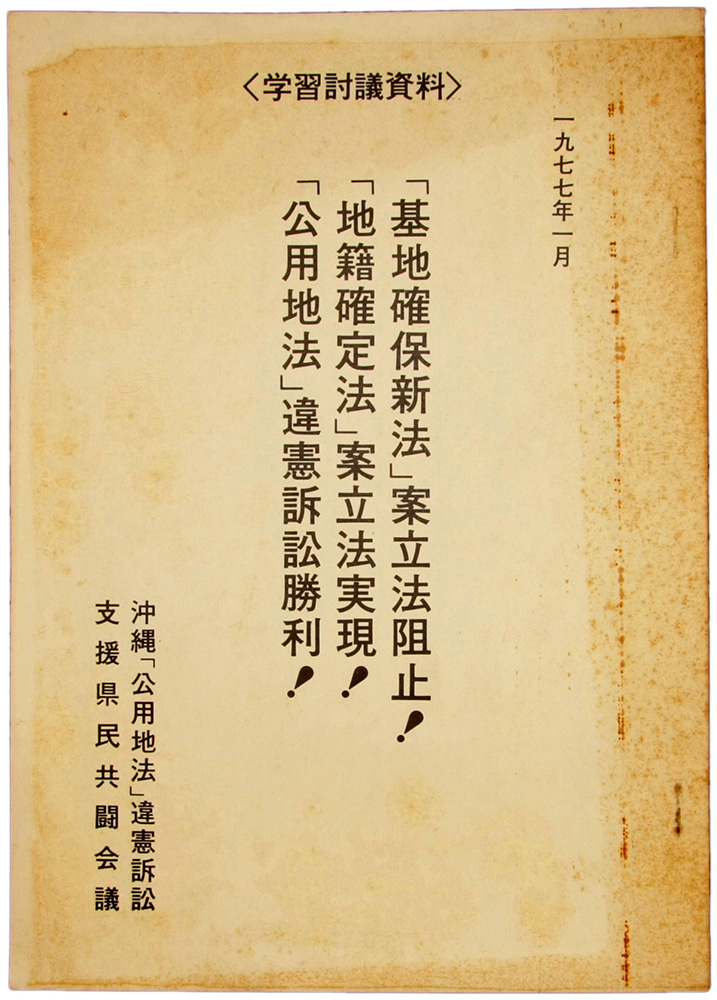 〈学習討議資料〉
一九七七年一月
「基地確保新法」案立法阻止!
「地籍確定法」案立法実現!
「公用地法」違憲訴訟勝利!
沖縄「公用地法」違憲訴訟
支援県民共闘会議